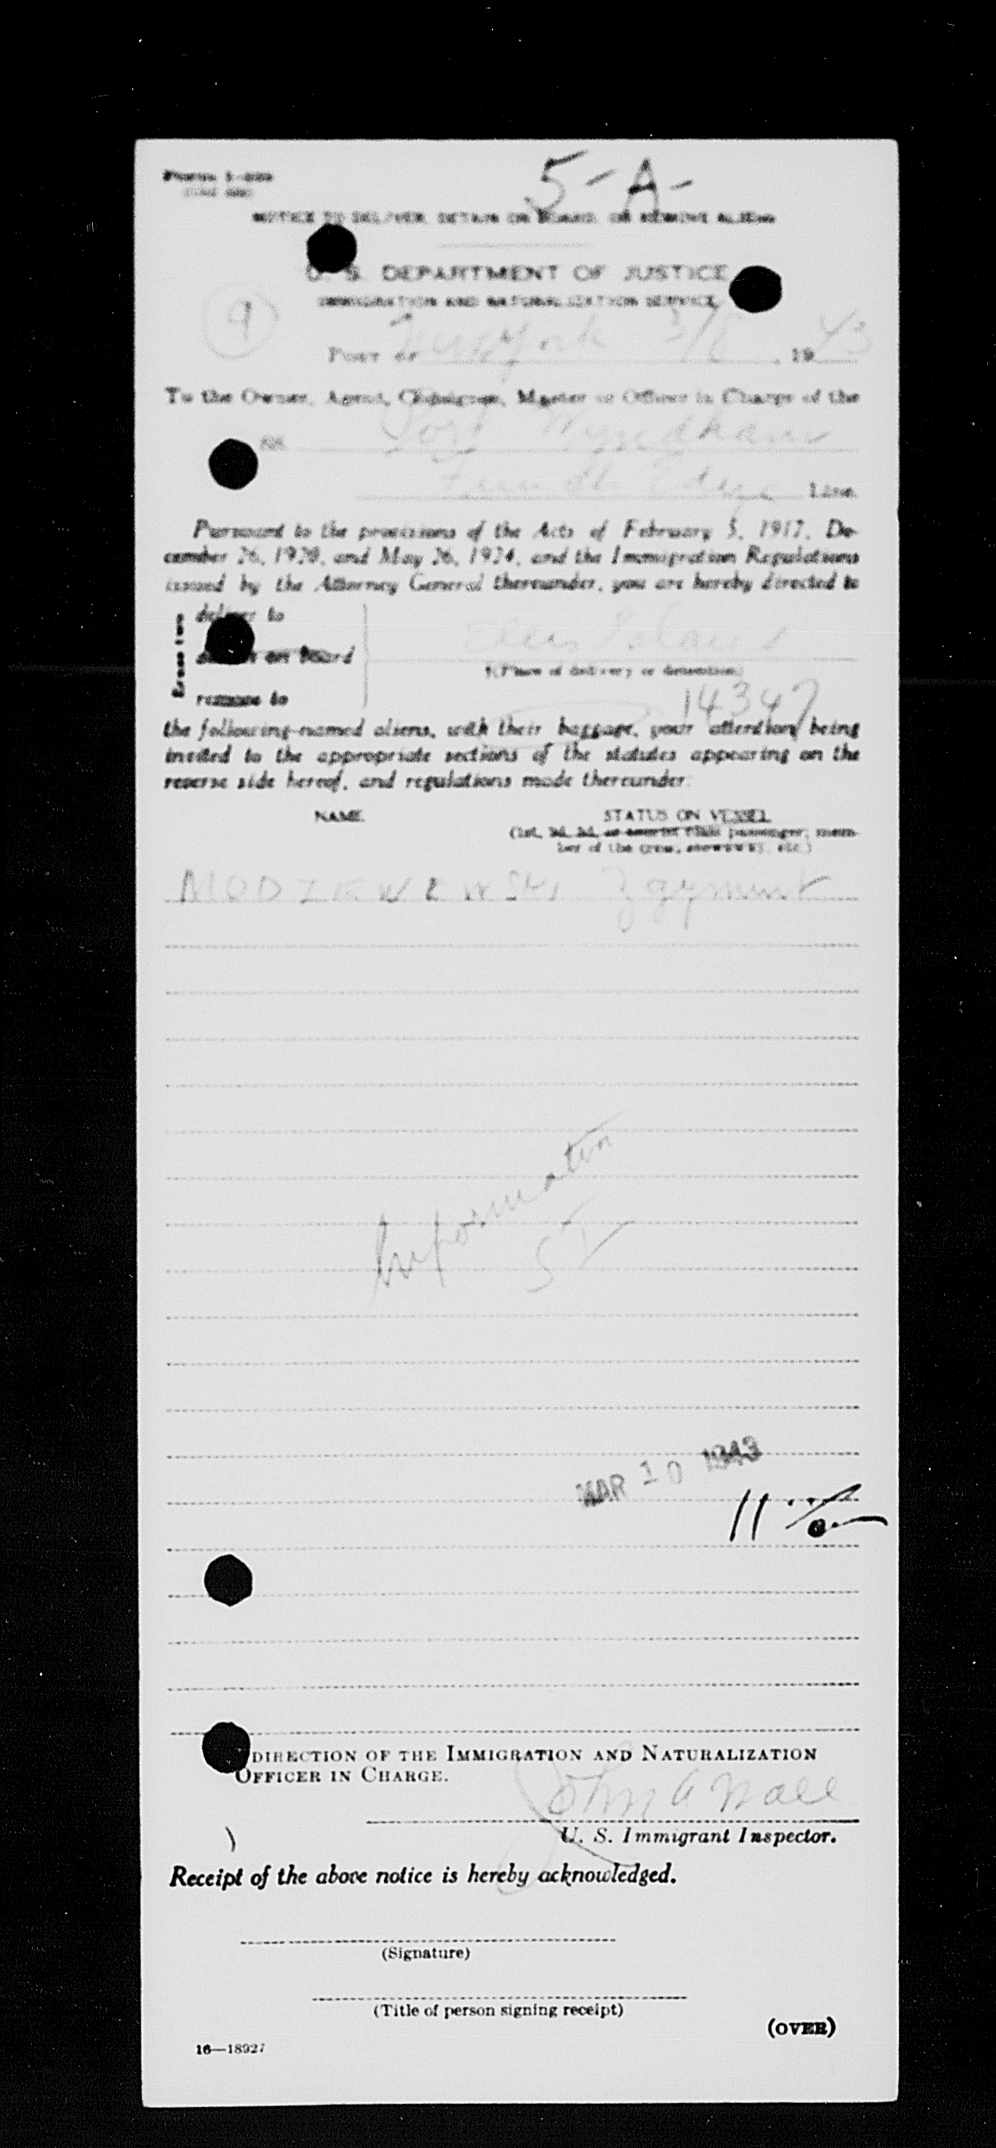 5-A-
NOTICE TO DELIVER, DETAIN ON BOARD, OR REMOVE ALIENS
U. S. DEPARTMENT OF JUSTICE
IMMIGRATION AND NATURALIZATION SERVICE
9
PORT OF New York 3/8, 1943
To the Owner, Agent, Consignee, Master or Officer in Charge of the
SS Port Wyndham
Line.
Pursuant to the provisions of the Acts of February 5, 1917, De-
cember 26, 1920, and May 26, 1924, and the Immigration Regulations
issued by the Attorney General thereunder, you are hereby directed to
deliver to
on board Ellis Island
(Place of delivery or detention)
remove to
14347
the following-named aliens, with their baggage, your attention being
invited to the appropriate sections of the statutes appearing on the
reverse side hereof, and regulations made thereunder:
NAME STATUS ON VESSEL
(1st, 2d, 3d, or tourist class passenger, mem-
ber of the crew, stowaway, etc.)
MODZIEWEWSKI Zygmunt
Information
S I
MAR 10 1943
11
DIRECTION OF THE IMMIGRATION AND NATURALIZATION
OFFICER IN CHARGE.
John A Wall
U. S. Immigrant Inspector.
Receipt of the above notice is hereby acknowledged.
(Signature)
(Title of person signing receipt)
(OVER)
16—18927